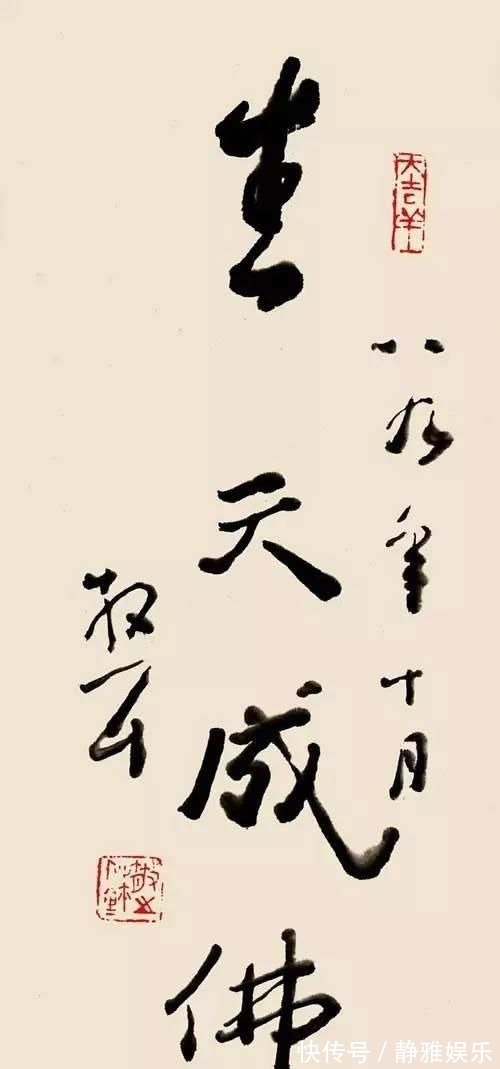 大吉羊
八九年十月
生天成佛
散
快传号/静雅娱乐